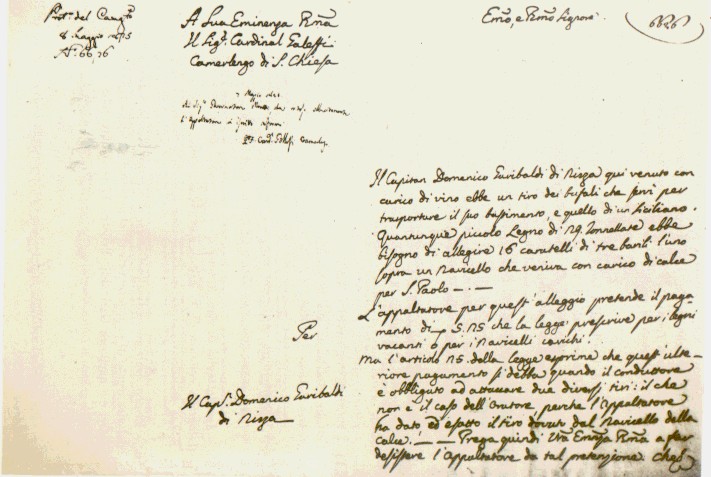 Prot. del Camgto
8. Maggio 1825
No. 6626
A Sua Eminenza Rma
Il Sigr. Cardinal Galeffi
Camerlengo di S. Chiesa
7 Maggio
Al Sigr.
l'appaltatore
Card. Galleffi Camerlgo
Per
Il Capn. Domenico Garibaldi
di Nizza
Emo, e Rmo Signore
6626
Il Capitan Domenico Garibaldi di Nizza qui venuto con
carico di vino ebbe un tiro dei bufali che servì per
trasportare il suo bastimento, e quello di un Siciliano.
Quantunque piccolo Legno di 29. Tonnellate ebbe
bisogno di allegire 16 caratelli di tre barili l'uno
sopra un Navicello che veniva con carico di calce
per S. Paolo — . —
L'appaltatore per quest'alleggio pretende il paga=
mento di che la legge prescrive per i legni
vacanti o per i Navicelli carichi.
Ma l'articolo 25. della legge esprime che quest'ulte=
riore pagamento si debba quando il conduttore
è obbligato ad attaccare due diversi tiri: il che
non è il caso dell'Oratore, perche l'Appaltatore
ha dato ed esatto il tiro dovuto dal Navicello della
calce. — — Prega quindi Vra Emnza Rma a far
desistere l'Appaltatore da tal pretenzione. Che